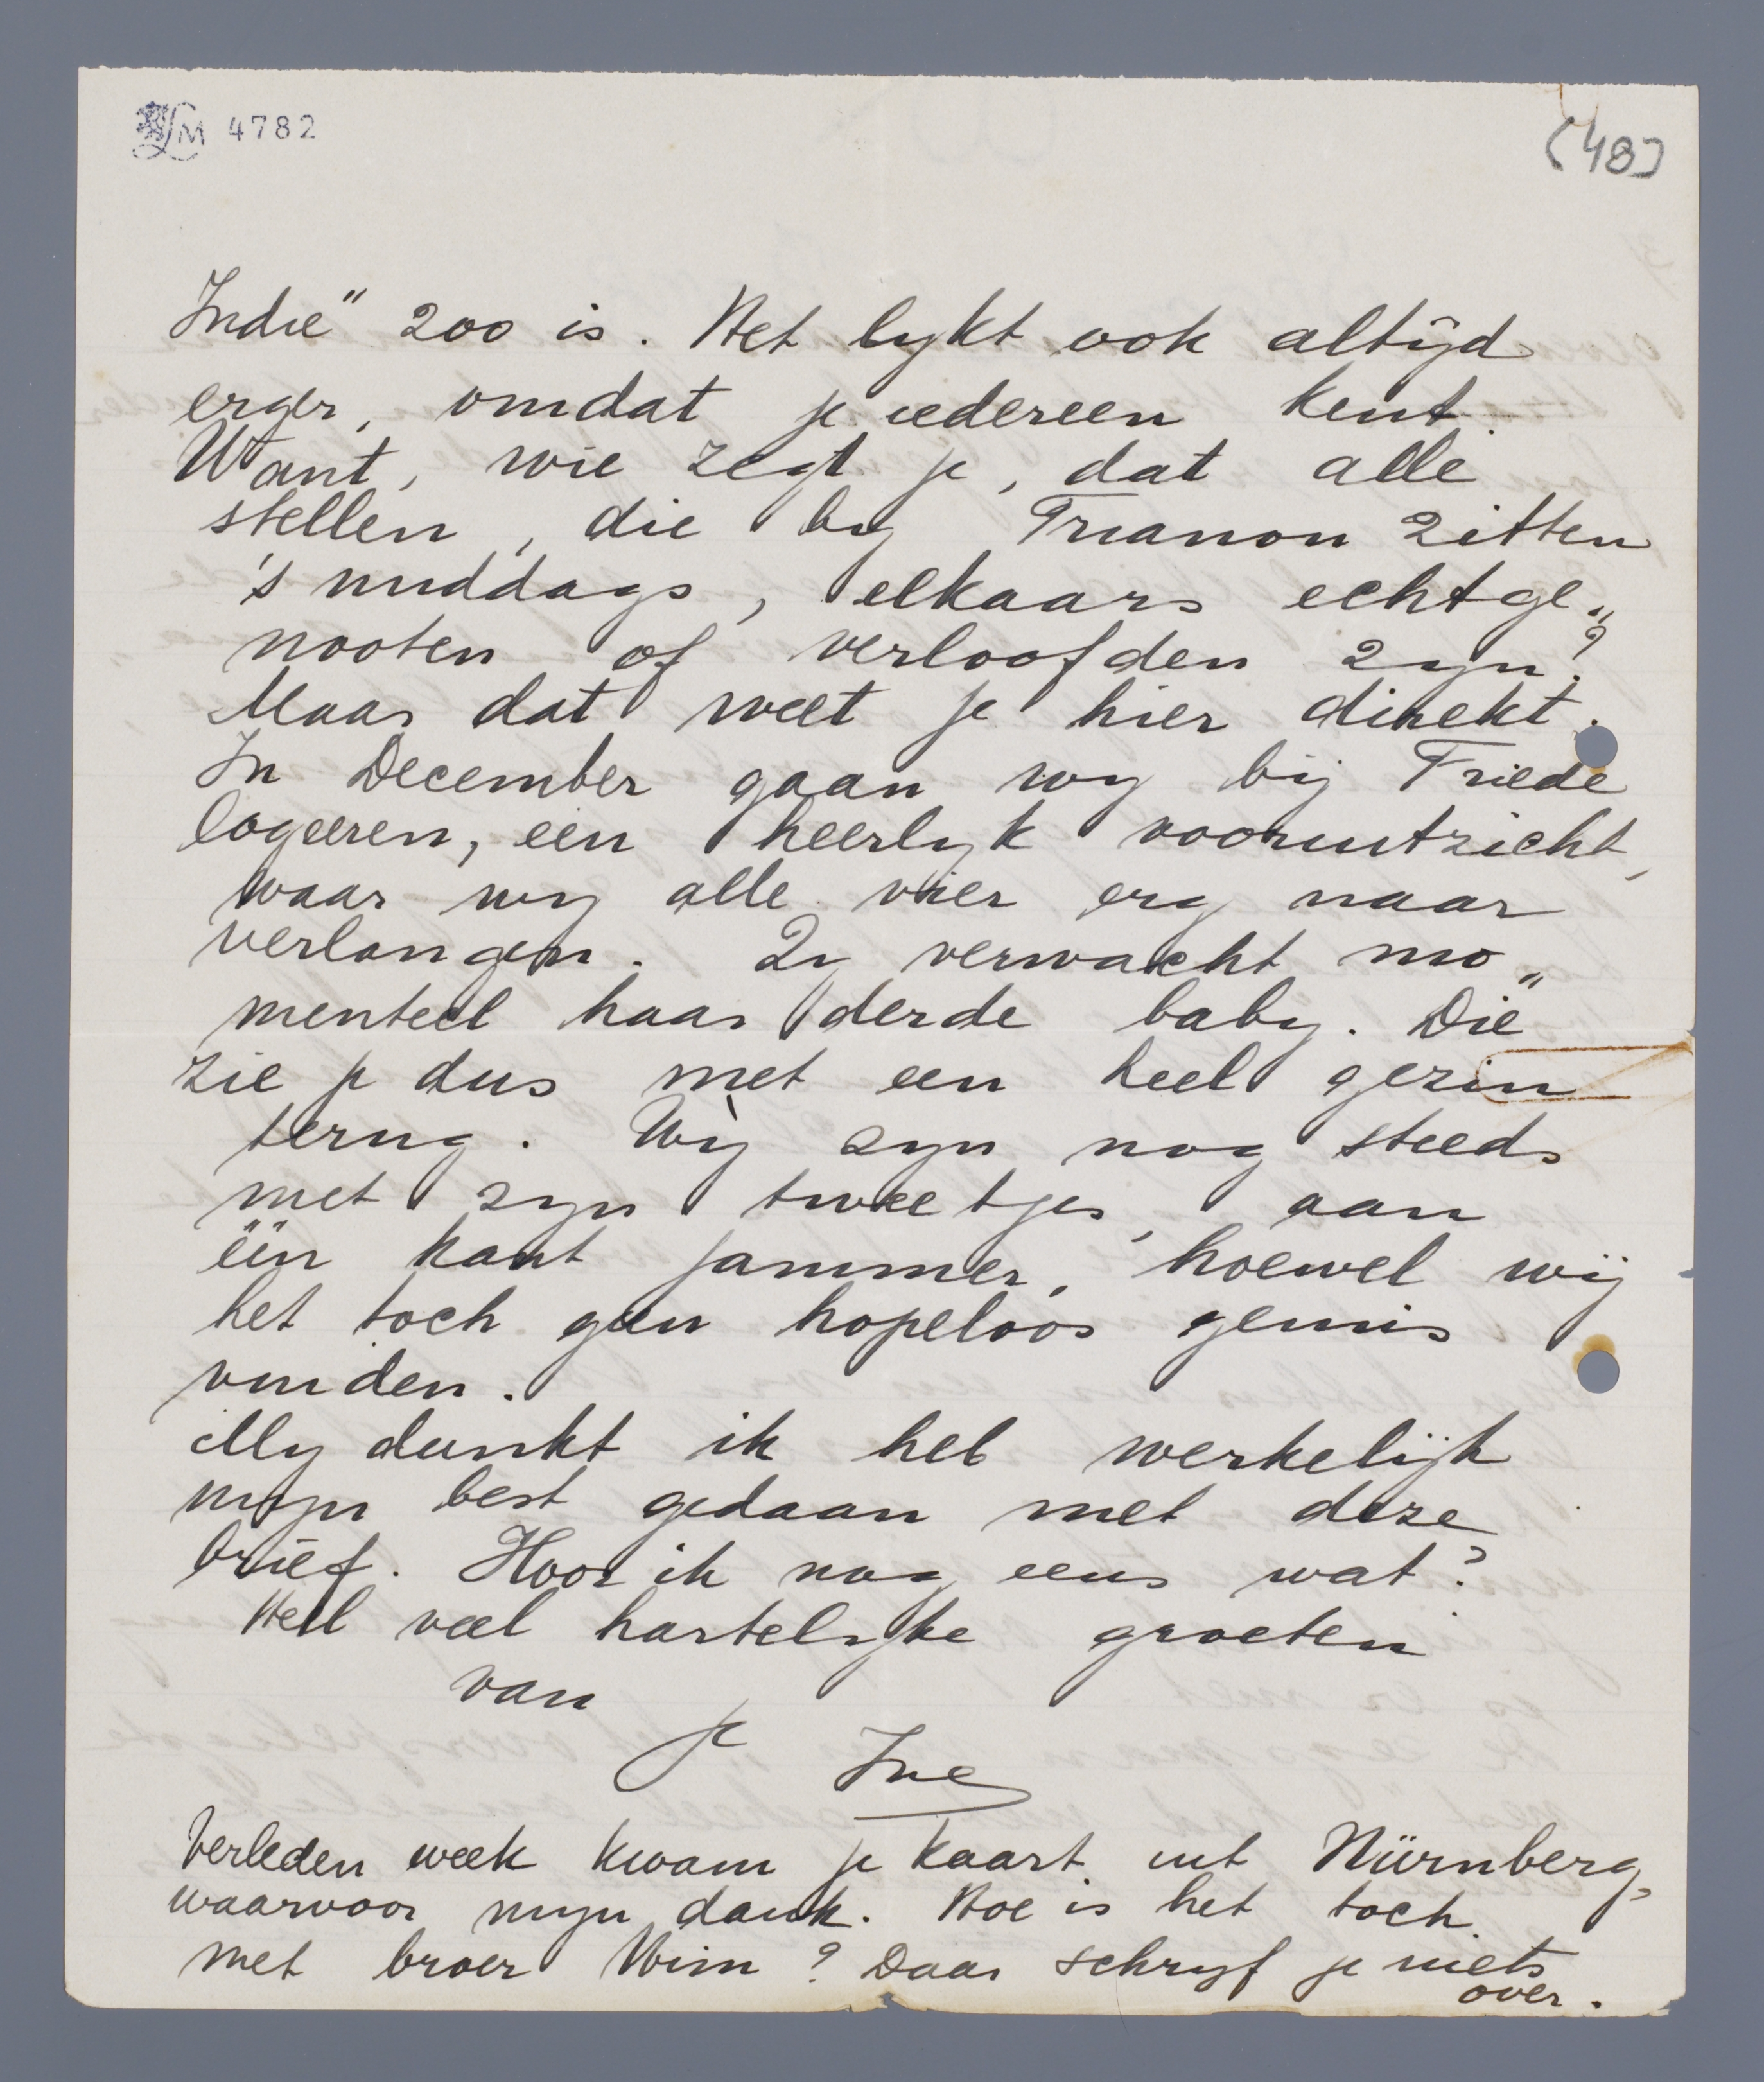 LM 4782
(48)
Indië" zoo is. Het lykt ook altijd
erger, omdat je iedereen kent.
Want, wie zegt je, dat alle
stellen, die by Trianon zitten
's middags, elkaars echtge„
nooten of verloofden zyn?
Maar dat weet je hier direkt.
In December gaan wy bij Friede
logeeren, een heerlyk vooruitzicht,
waar wy alle vier erg naar
verlangen. Zy verwacht mo„
menteel haar derde baby. Die
zie je dus met een heel gezin
terug. Wij zyn nog steeds
met zyn tweetjes, aan
één kant jammer, hoewel wij
het toch geen hopeloos gemis
vinden.
My dunkt ik heb werkelijk
myn best gedaan met deze
brief. Hoor ik nog eens wat?
Heel veel hartelyke groeten
van
je Ine
Verleden week kwam je kaart uit Nürnberg,
waarvoor myn dank. Hoe is het toch
met broer Wim? Daar schryf je niets
over.